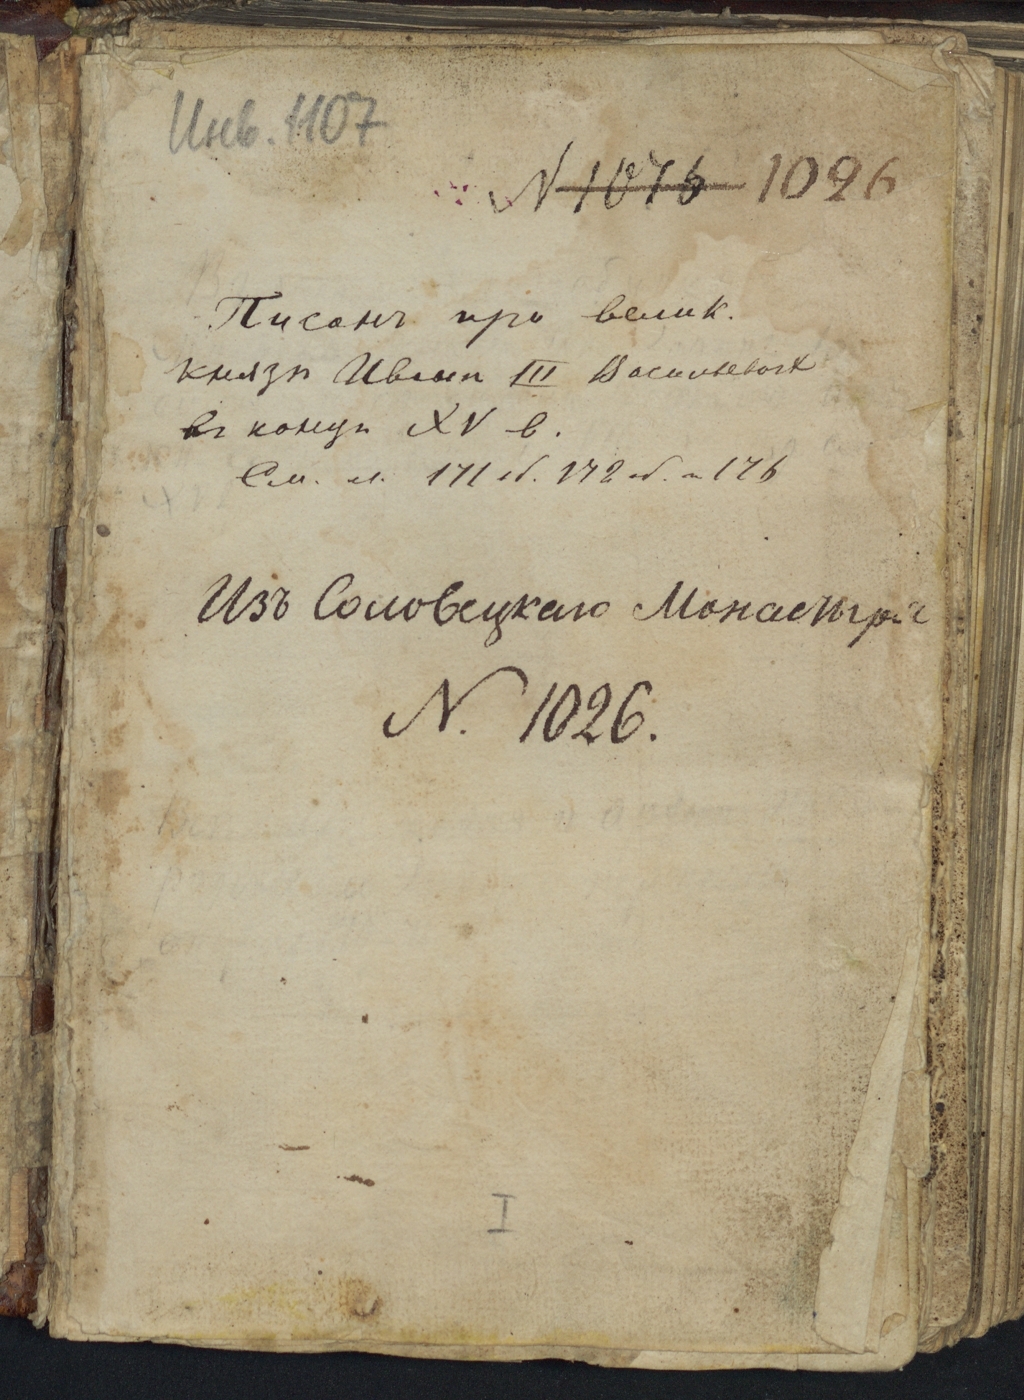 Инв. 1107
N 1076 1026
Писанъ при велик.
князѣ Иванѣ III Васильевичѣ
въ концѣ XV в.
См. л. 171 об. 172 об. и 176
Изъ Соловецкаго Монастыря
N. 1026.
I